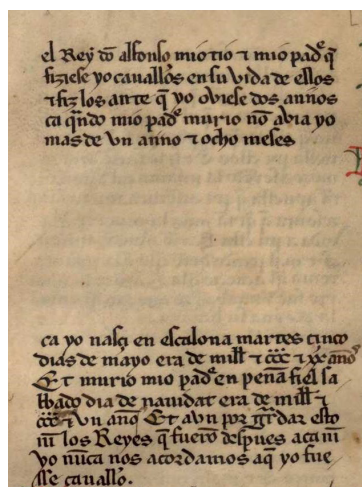 el Rey dõ alfonso mio tio ⁊ mio padʳe q̃
fiziese yo cavallos en su vida de ellos
⁊ fiz los ante q̃ yo oviese dos años
ca qñdo mio padʳe murio nõ avia yo
mas de vn anno ⁊ ocho meses
ca yo nasçi en escalona martes çinco
dias de mayo era de mill ⁊ ccc ⁊ xx años
Et murio mio padʳe en peña fiel sa
bado dia de navidat era de mill ⁊
ccc ⁊ vn año Et avn por gʳdar esto
ni los Reyes q̃ fuerõ despues aca ni
yo nũca nos acordamos a q̃ yo fue
sse cavallo.